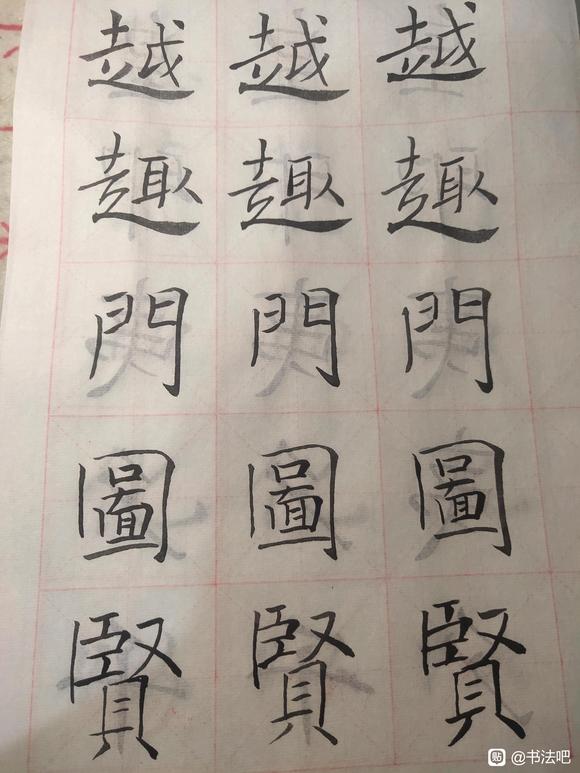 越越越
趣趣趣
門門門
圖圖圖
賢賢賢
贴 @书法吧